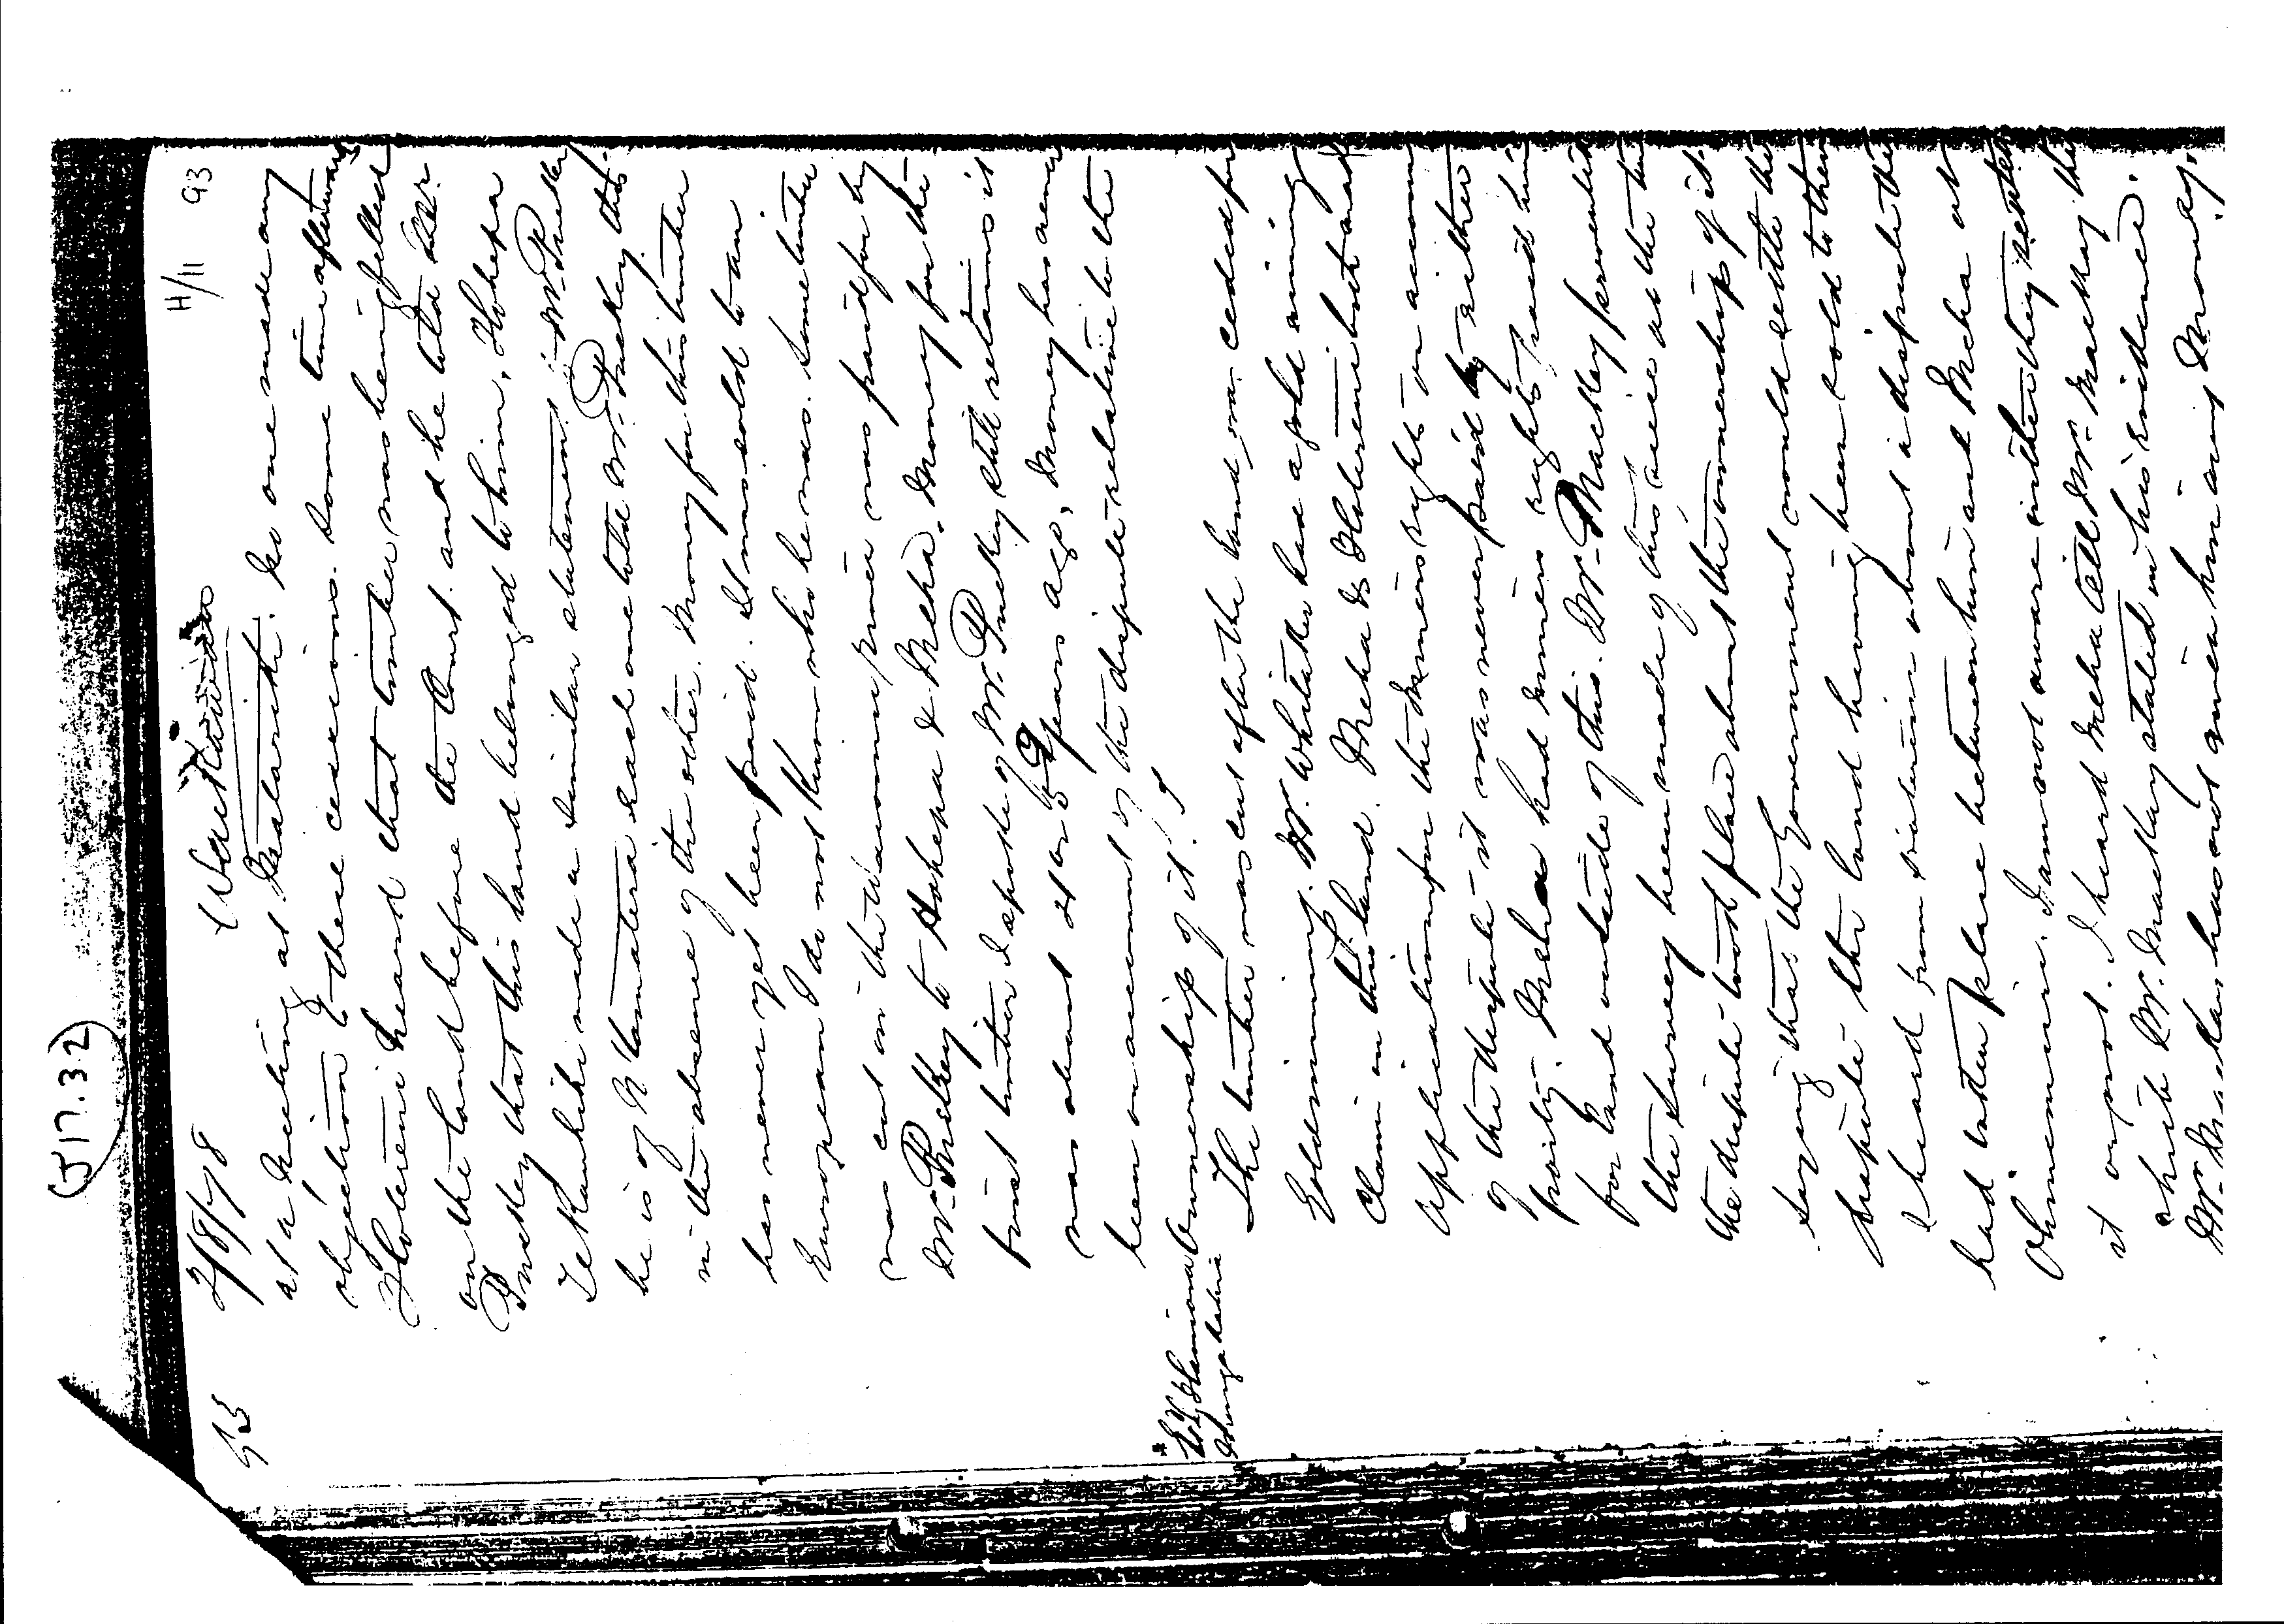 (J17.32)
H/11 93
93 2/8/78 Waikawau
at a meeting at Mataariki. No one made any
objection to these cessions. Some time afterwards
Hotereni heard that timber was being felled
on the land before the Court and he told Mr.
Puckey that this land belonged to him. Hohepa
Te Rauhihi made a similar statement to Mr. Puckey
he is of N Tamatera each one told Mr. Puckey this
in the absence of the other. Money for this timber
has never yet been paid. It was sold to an
European I do not know who he was. Some timber
was cut on the Waiomu prior was paid for by
Mr. Puckey to Hohepa & Meha. Money for the
first timber I spoke of Mr. Puckey still retains it
was about 4 or 5 years ago, money has never
been on account of the dispute relative to the
ownership of it.
The timber was cut after the land was ceded for
Goldmining. Mr. Whitaker has a gold mining
claim in this land. Meha & Hotereni both made
application for the Miners rights on account
of the dispute it was never paid to either
party. Meha had miners rights paid him
for land outside of this. Mr. Mackay prevented
the survey been made of this area at the time
the dispute took place about the ownership of it
saying that the Government would settle the
dispute the land having been sold to them
I heard from Hotereni about a dispute that
had taken place between him and Meha at
Ohinemuri. I am not aware whether they settled
it or not. I heard Meha tell Mr. Mackay the
which Mr. Mackay stated in his evidence.
Mr. Mackay has not given him any money.